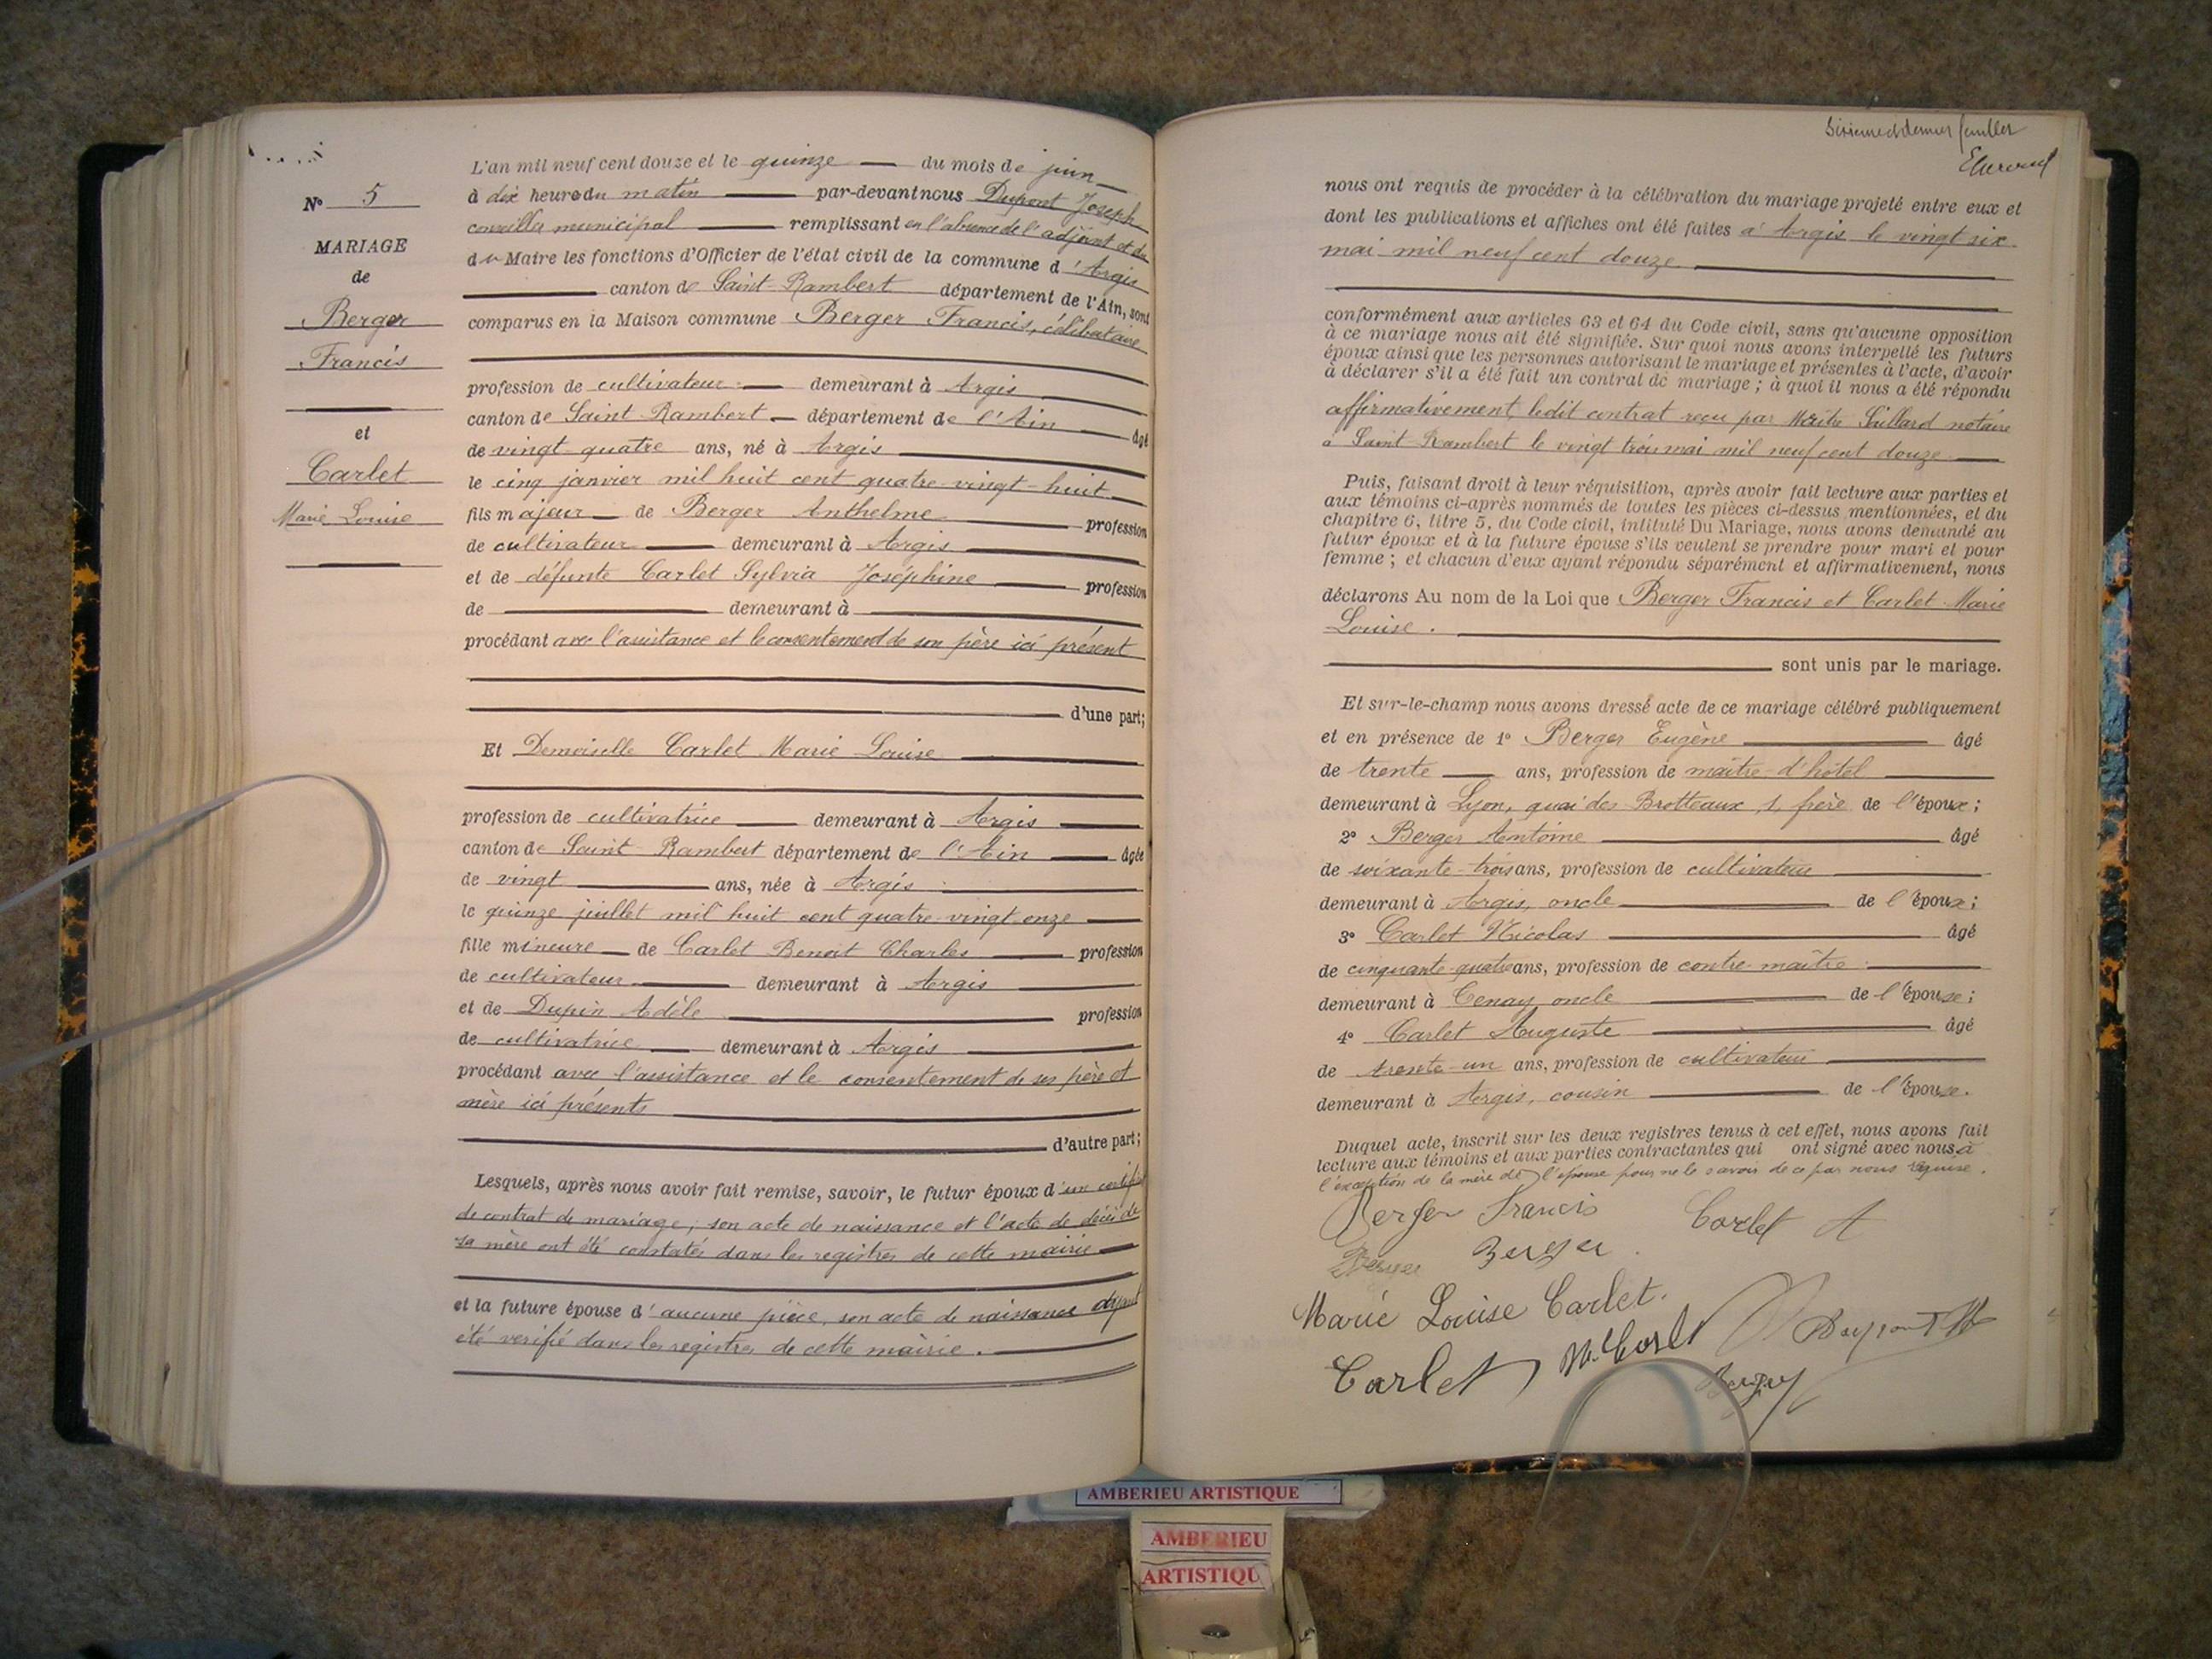 N° 5
MARIAGE
de
Berger
Francis
et
Carlet
Marie Louise
L'an mil neuf cent douze et le quinze du mois de juin
à dix heure du matin par-devant nous Dupont Joseph
conseiller municipal remplissant en l'absence de l'adjoint et du
du Maire les fonctions d'Officier de l'état civil de la commune d'Argis
canton de Saint-Rambert département de l'Ain, sont
comparus en la Maison commune Berger Francis, célibataire
profession de cultivateur demeurant à Argis
canton de Saint-Rambert département de l'Ain âgé
de vingt-quatre ans, né à Argis
le cinq janvier mil huit cent quatre-vingt-huit
fils majeur de Berger Anthelme profession
de cultivateur demeurant à Argis
et de défunte Carlet Sylvia Joséphine profession
de demeurant à
procédant avec l'assistance et le consentement de son père ici présent
d'une part;
Et Demoiselle Carlet Marie Louise
profession de cultivatrice demeurant à Argis
canton de Saint-Rambert département de l'Ain âgée
de vingt ans, née à Argis
le quinze juillet mil huit cent quatre-vingt-onze
fille mineure de Carlet Benoit Charles profession
de cultivateur demeurant à Argis
et de Dupin Adèle profession
de cultivatrice demeurant à Argis
procédant avec l'assistance et le consentement de ses père et
mère ici présents
d'autre part;
Lesquels, après nous avoir fait remise, savoir, le futur époux d'un certificat
de contrat de mariage, son acte de naissance et l'acte de décès de
sa mère ont été constatés dans les registres de cette mairie
et la future épouse d'aucune pièce, son acte de naissance ayant
été verifié dans les registres de cette mairie.
Sixième et dernier feuillet
nous ont requis de procéder à la célébration du mariage projeté entre eux et
dont les publications et affiches ont été faites à Argis le vingt six
mai mil neuf cent douze
conformément aux articles 63 et 64 du Code civil, sans qu'aucune opposition
à ce mariage nous ait été signifiée. Sur quoi nous avons interpellé les futurs
époux ainsi que les personnes autorisant le mariage et présentes à l'acte, d'avoir
à déclarer s'il a été fait un contrat de mariage; à quoi il nous a été répondu
affirmativement, ledit contrat reçu par Maître Saillard notaire
à Saint-Rambert le vingt trois mai mil neuf cent douze
Puis, faisant droit à leur réquisition, après avoir fait lecture aux parties et
aux témoins ci-après nommés de toutes les pièces ci-dessus mentionnées, et du
chapitre 6, titre 5, du Code civil, intitulé Du Mariage, nous avons demandé au
futur époux et à la future épouse s'ils veulent se prendre pour mari et pour
femme; et chacun d'eux ayant répondu séparément et affirmativement, nous
déclarons Au nom de la Loi que Berger Francis et Carlet Marie
Louise.
sont unis par le mariage.
Et sur-le-champ nous avons dressé acte de ce mariage célébré publiquement
et en présence de 1° Berger Eugène âgé
de trente ans, profession de maître d'hôtel
demeurant à Lyon, quai des Brotteaux, 1, frère de l'époux;
2° Berger Antoine âgé
de soixante-trois ans, profession de cultivateur
demeurant à Argis, oncle de l'époux;
3° Carlet Nicolas âgé
de cinquante-quatre ans, profession de contre-maître
demeurant à Tenay, oncle de l'épouse;
4° Carlet Auguste âgé
de trente-un ans, profession de cultivateur
demeurant à Argis, cousin de l'épouse.
Duquel acte, inscrit sur les deux registres tenus à cet effet, nous avons fait
lecture aux témoins et aux parties contractantes qui ont signé avec nous à
l'exception de la mère de l'épouse pour ne le savoir de ce par nous requise.
Berger Francis Carlet A
Berger Berger
Marie Louise Carlet.
Carlet N. Carlet Dupont
Berger
AMBERIEU ARTISTIQUE
AMBERIEU
ARTISTIQU